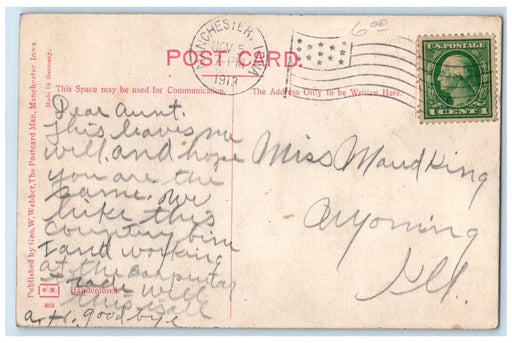 MANCHESTER, IOWA
NOV 5
PM
1913
6 00
U.S. POSTAGE
1 CENT 1
POST CARD.
This Space may be used for Communication.
The Address Only to be Written Here.
Dear Aunt.
this leaves me
well. and hope
you are the
same. we
like this
country fine
I and working
at the carpentar
trade well
this is all
goodbye
Miss Maud King
Wyoming
Ill.
Published by Geo. W. Webber, The Postcard Man, Manchester, Iowa
Made in Germany.
S.N.
Handcolored.